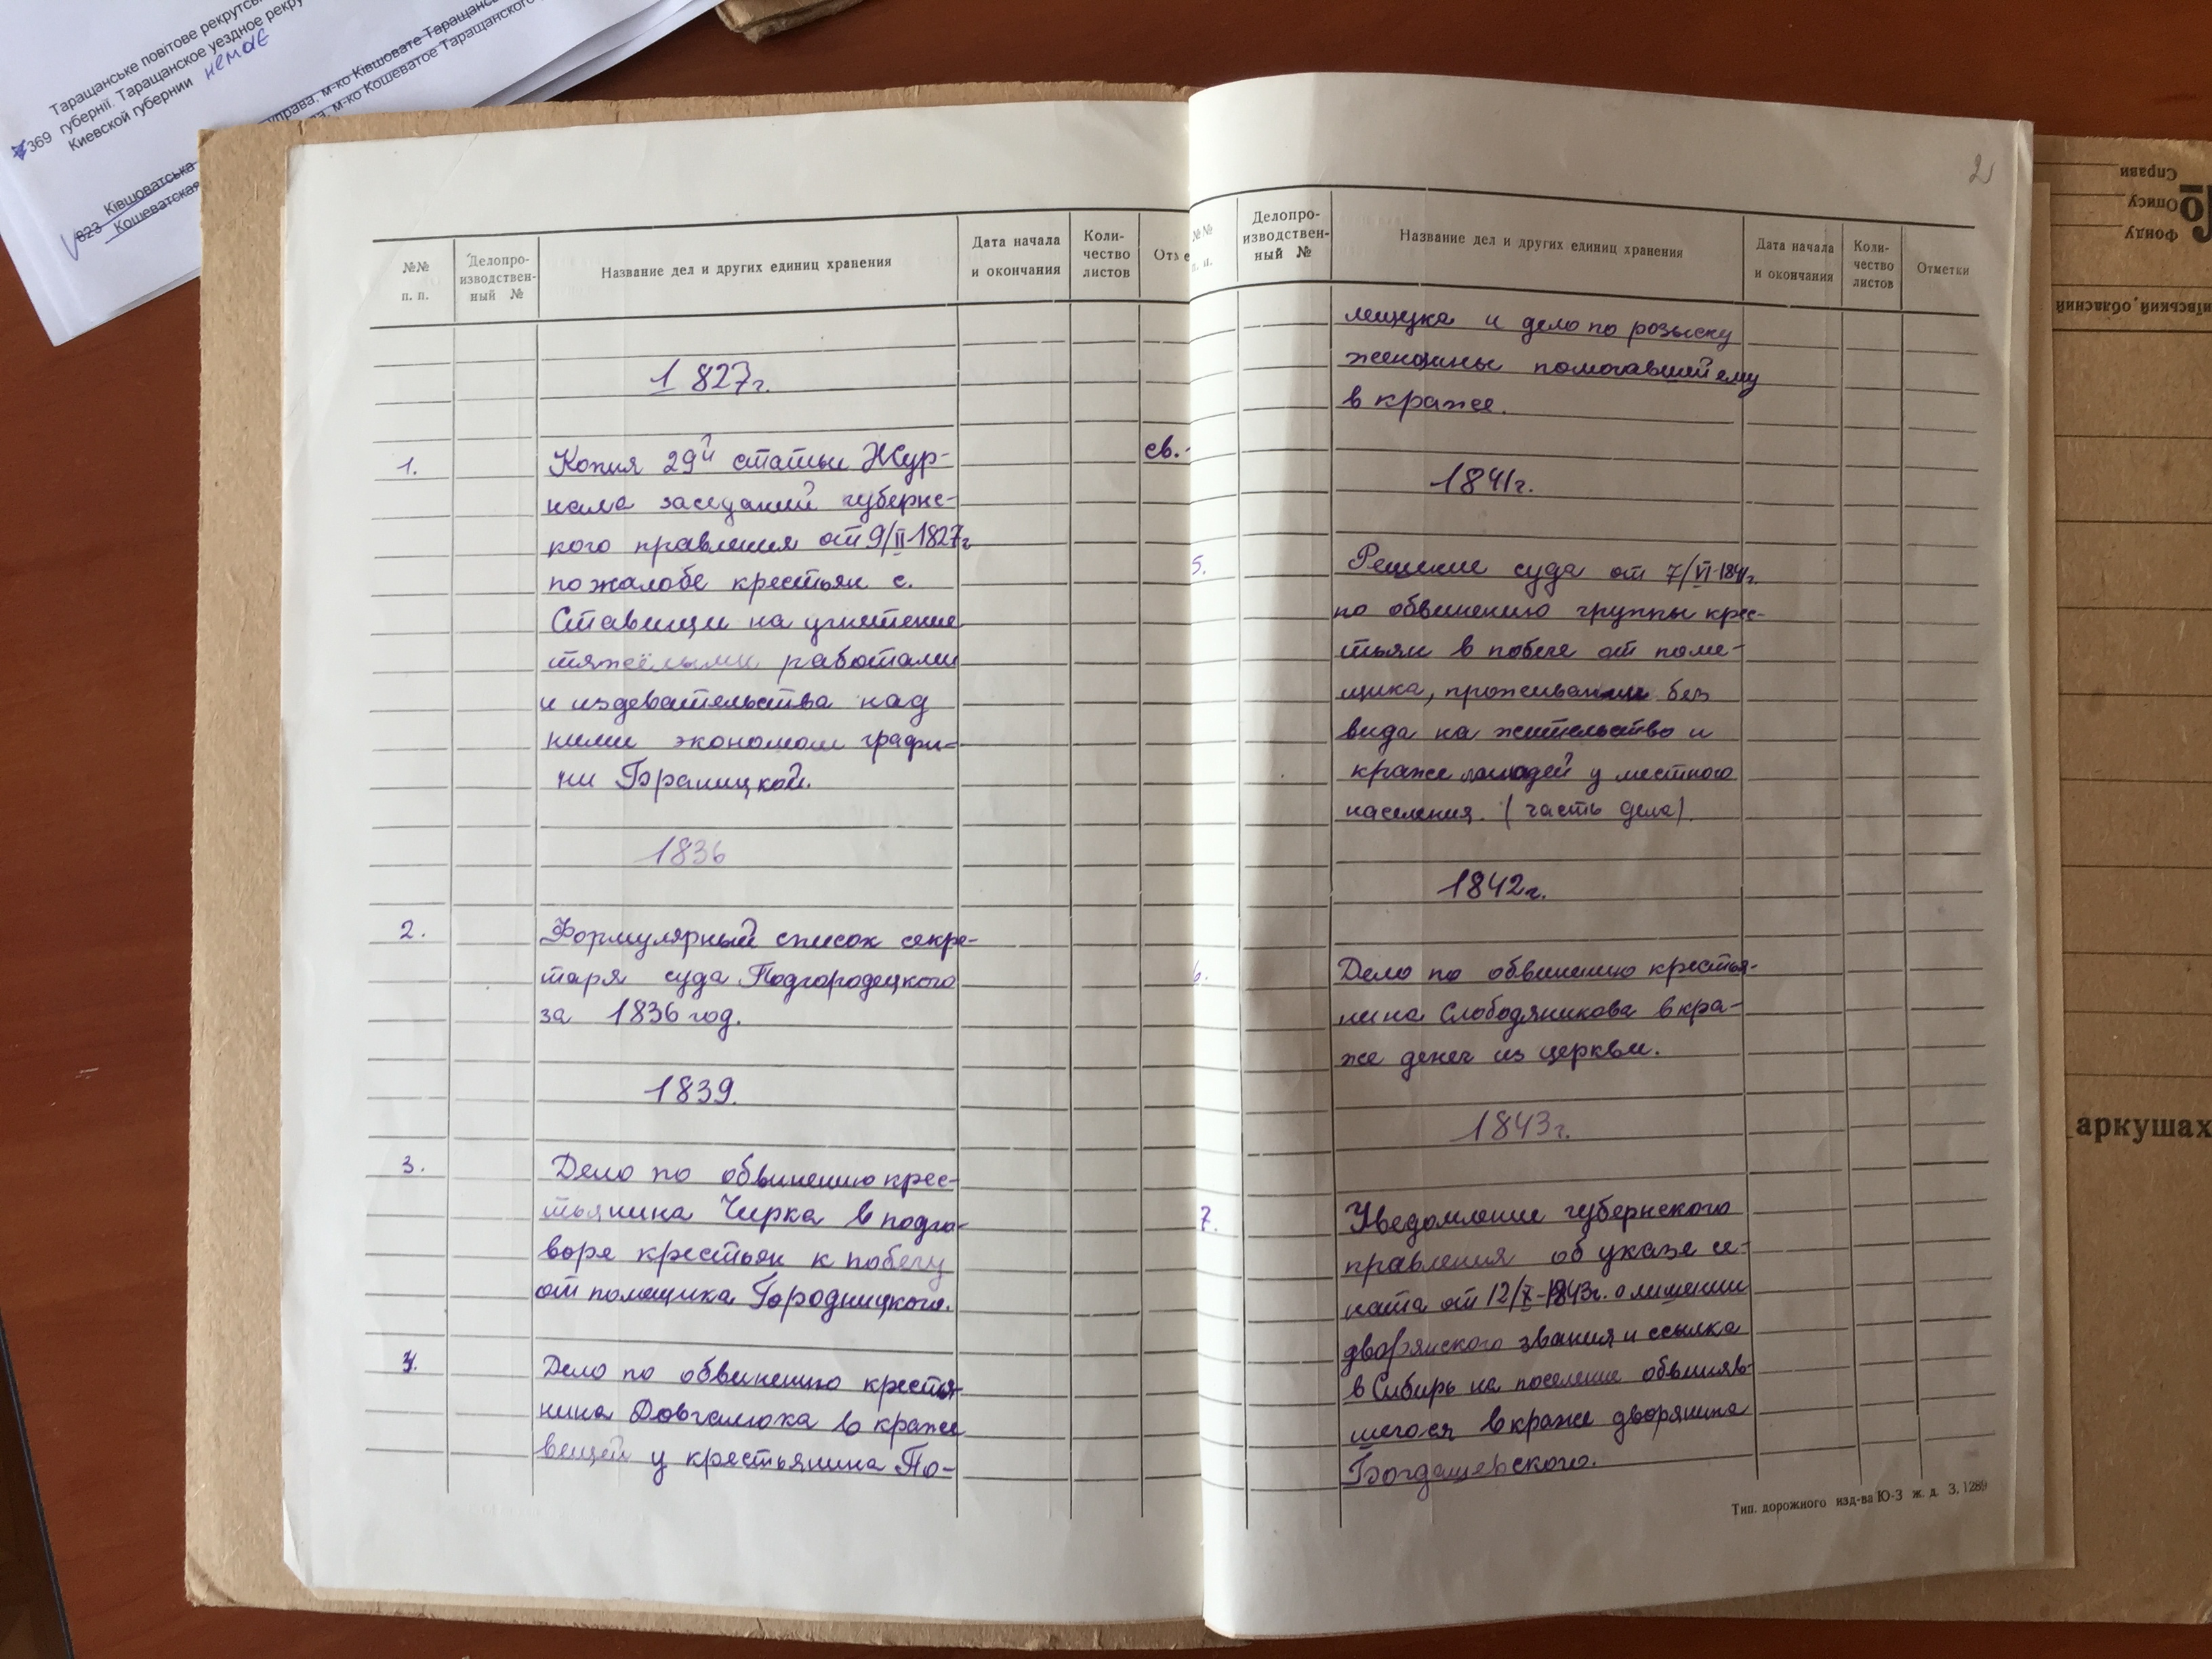 Таращанське повітове рекрутсь
губернії. Таращанское уездное рекру
369
Киевской губернии немає
управа, м-ко Ківшовате Таращансь
м-ко Кошеватое Таращанского
Ківшоватська
823 Кошеватская
№№ п. п.
Делопро-
изводствен-
ный №
Название дел и других единиц хранения
Дата начала
и окончания
Коли-
чество
листов
Отме
1827г.
1.
Копия 29й статьи Жур-
св.-
нала заседаний губернс-
кого правления от 9/II 1827г
по жалобе крестьян с.
Ставищи на угнетение
тяжёлыми работами
и издевательства над
ними экономом графи-
ни Браницкой.
1836
2.
Формулярный список секре-
таря суда Подгородецкого
за 1836 год.
1839.
3.
Дело по обвинению крес-
тьянина Чирка в подго-
воре крестьян к побегу
от помещика Городницкого.
4.
Дело по обвинению крестья
нина Довгалюка в краже
вещей у крестьянина По-
2
№№
п. п.
Делопро-
изводствен-
ный №
Название дел и других единиц хранения
Дата начала
и окончания
Коли-
чество
листов
Отметки
лищука и дело по розыску
женщины помогавшей ему
в краже.
1841г.
5.
Решение суда от 7/VI-1841г.
по обвинению группы крес-
тьян в побеге от поме-
щика, проживании без
вида на жительство и
краже лошадей у местного
населения. (часть дела).
1842г.
6.
Дело по обвинению крестья-
нина Слободяникова в кра-
же денег из церкви.
1843г.
7.
Уведомление губернского
правления об указе се-
ната от 12/X-1843г. о лишении
дворянского звания и ссылка
в Сибирь на поселение обвиняв-
шегося в краже дворянина
Богдашевского.
Тип. дорожного изд-ва Ю-З ж. д. З. 1289
Справи
Опису
Фонду
ївський, обласний
аркушах